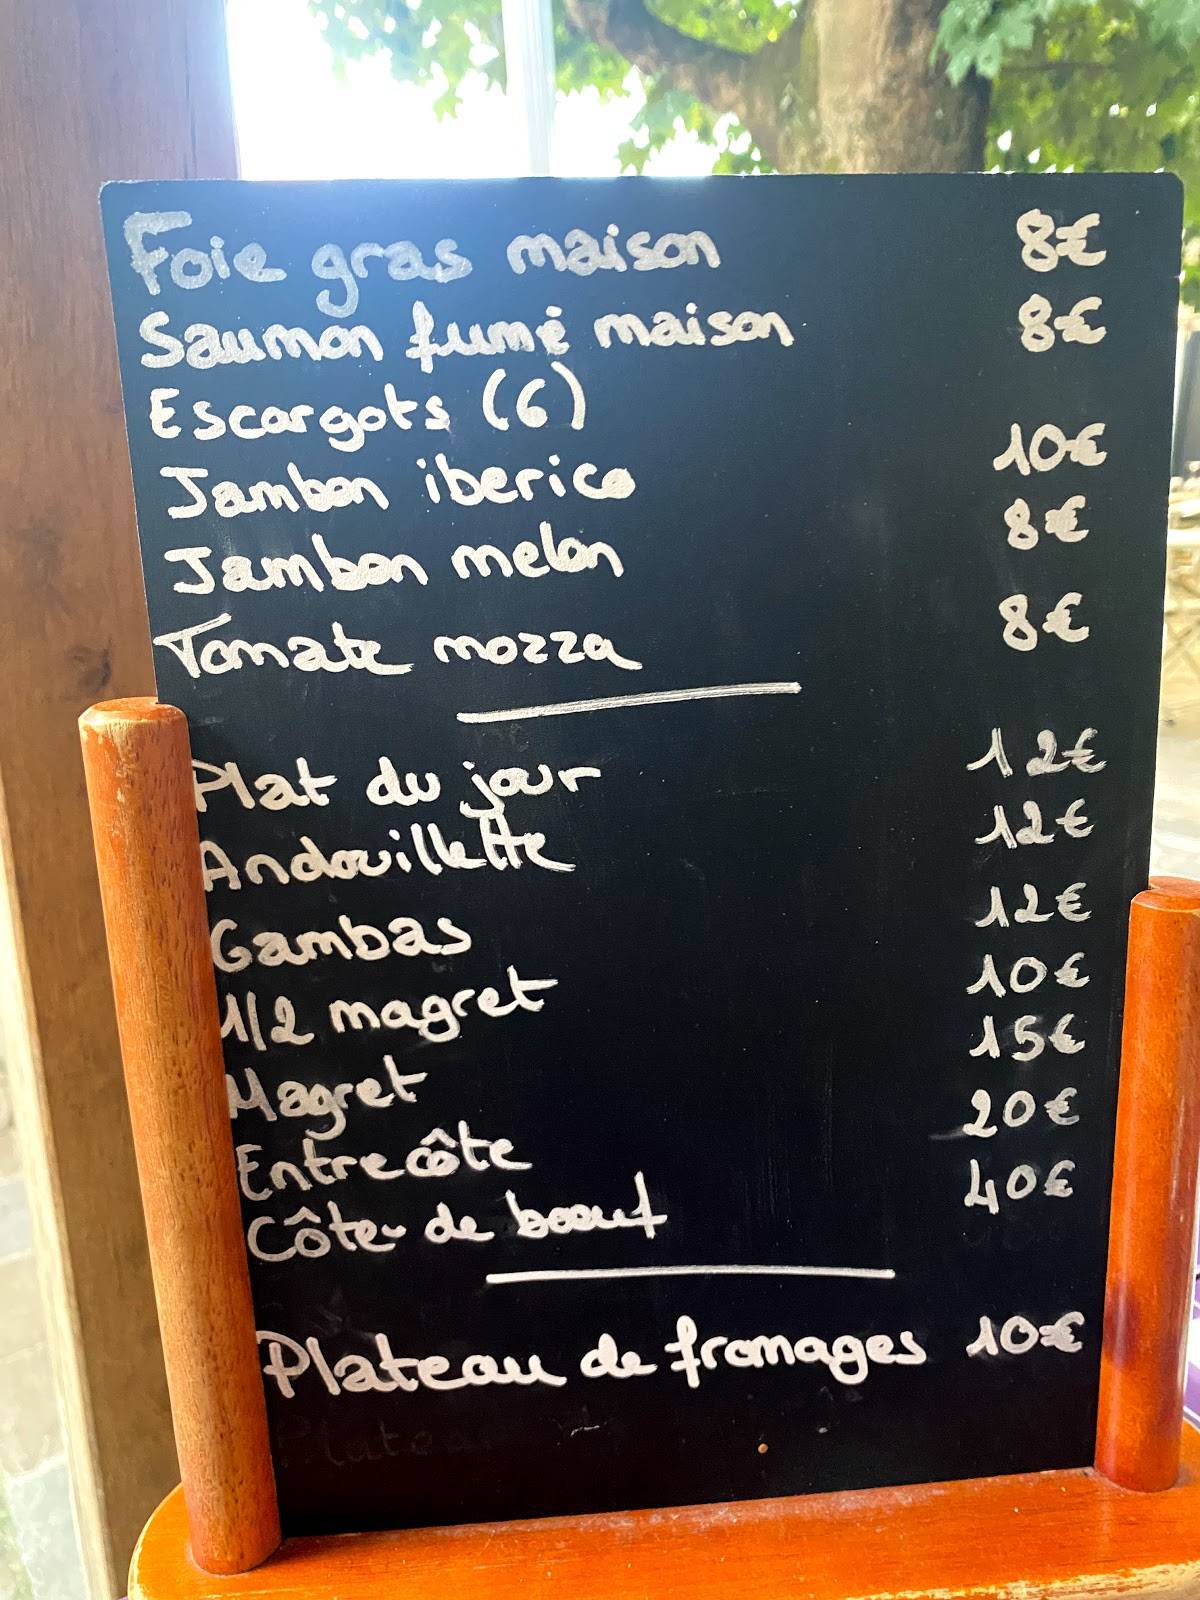 Foie gras maison 8€
Saumon fumé maison 8€
Escargots (6)
Jambon iberico 10€
Jambon melon 8€
Tomate mozza 8€
Plat du jour 12€
Andouillette 12€
Gambas 12€
1/2 magret 10€
Magret 15€
Entrecôte 20€
Côte de boeuf 40€
Plateau de fromages 10€